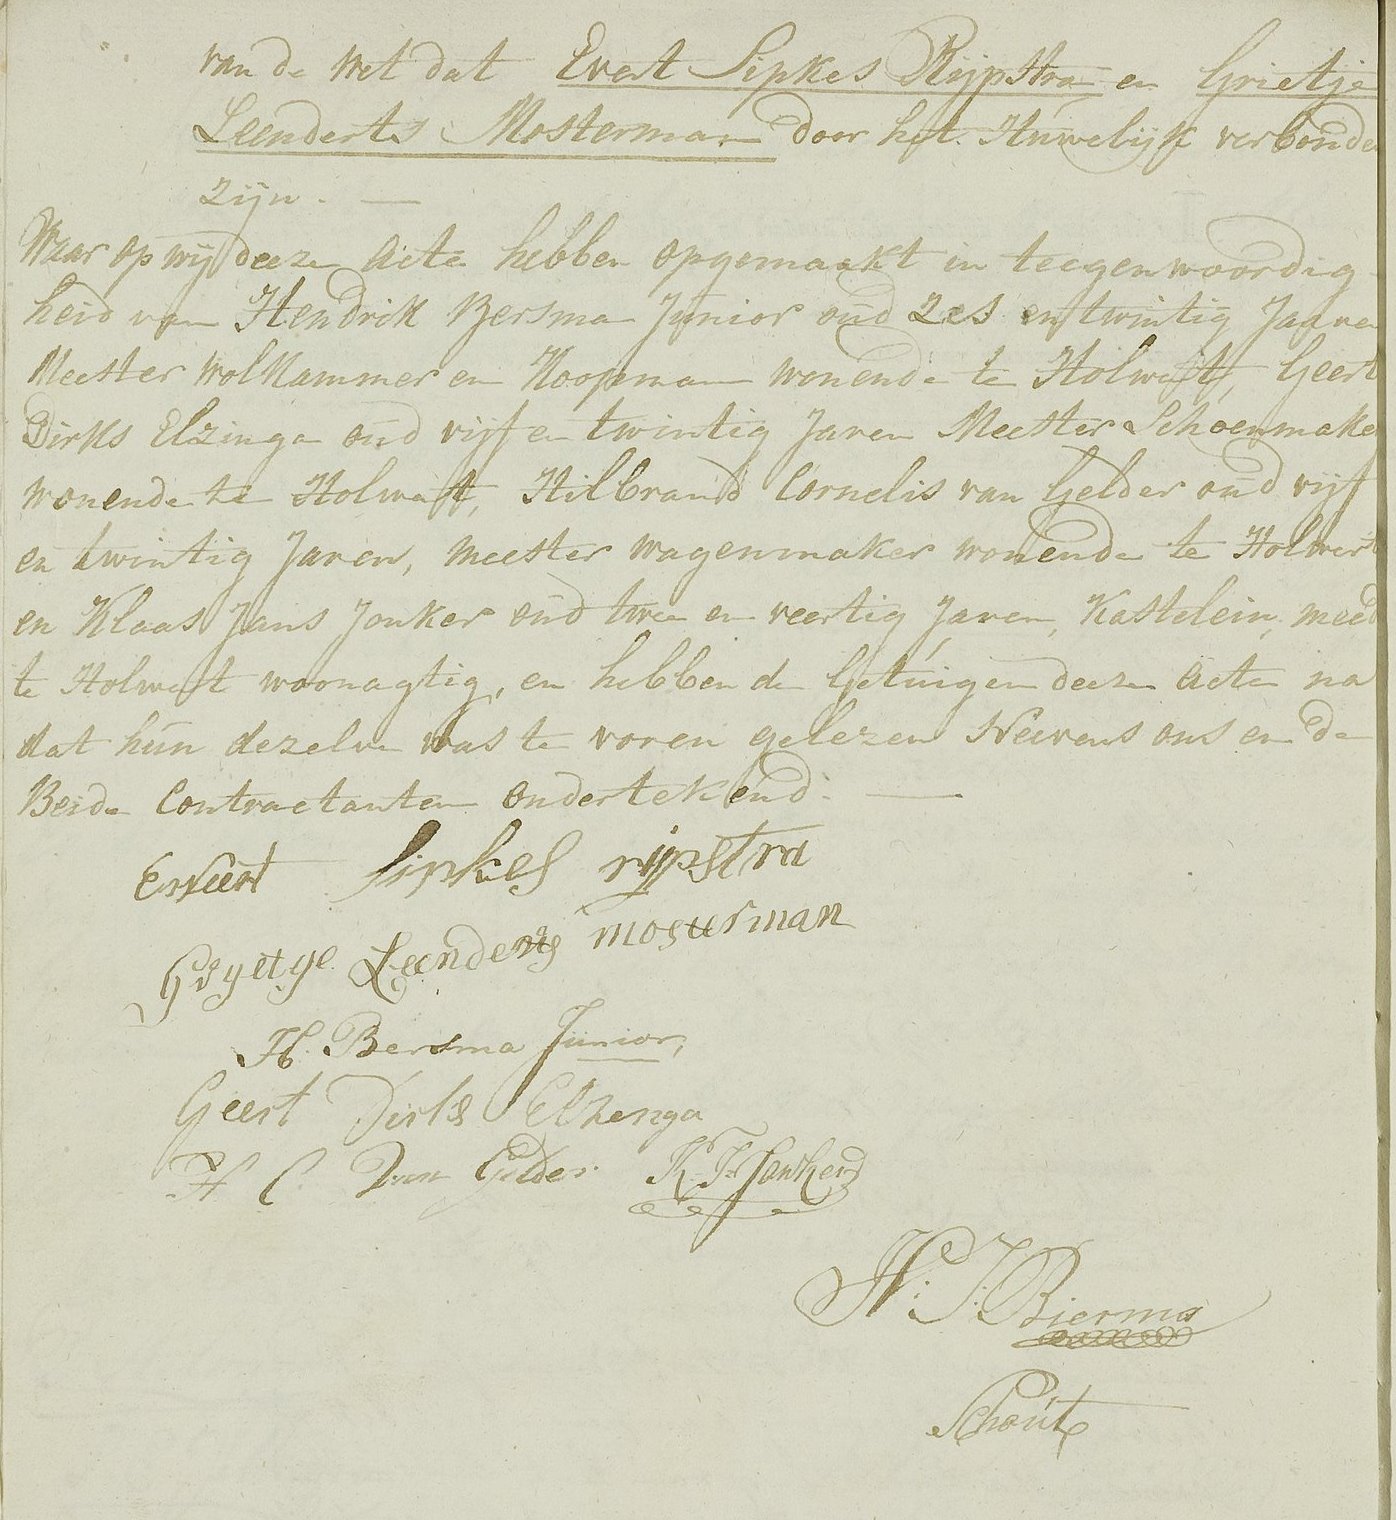 van de Wet dat Evert Sipkes Rijpstra en Grietje
Leenderts Mosterman door het Huwelijk verbonde
zijn. —
Waar op wij deeze Acte hebben opgemaakt in teegenwoordig
heid van Hendrik Bersma Junior oud Zes en twintig Jaare
Meester Wolkammer en Koopman wonende te Holwert, Geert
Dirks Elzinga oud vijf en twintig Jaren Meester Schoenmake
wonende te Holwert, Hilbrand Cornelis van Gelder oud vijf
en twintig Jaren, meester wagenmaker wonende te Holwert
en Klaas Jans Jonker oud twee en veertig Jaren, Kastelein, meed
te Holwert woonagtig, en hebben de Getuigen deeze Acte na
dat hun dezelve was te voren gelezen Neevens ons en de
Beide Contractanten ondertekend. —
Evert Sipkes rijpstra
Gryetye Leenderts mosterman
H. Bersma Junior,
Geert Dirks Elzenga
H C Van Gelder K. J. Jonker
W: J: Bierma
Schout